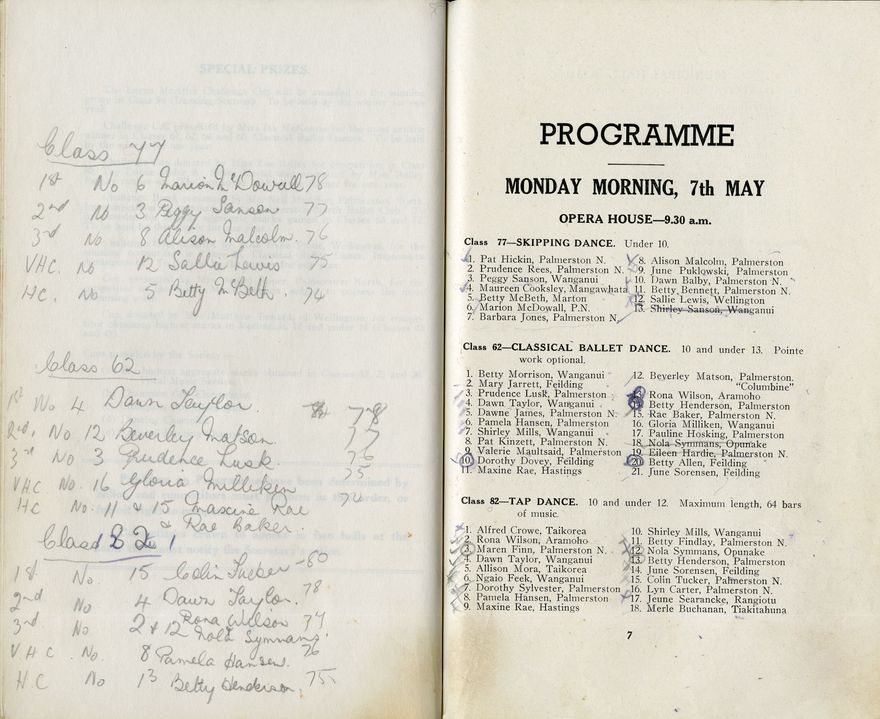 SPECIAL PRIZES
Class 77
1st No 6 Marion McDowall 78
2nd No 3 Peggy Sanson 77
3rd No 8 Alison Malcolm. 76
VHC. No 12 Sallie Lewis 75
HC. No 5 Betty McBeth. 74
Class 62
1st No 4 Dawn Taylor 78
2nd. No 12 Beverley Matson. 77
3rd No 3 Prudence Lusk. 76
VHC No. 16 Gloria Milliken 75
HC No. 11 & 15 Maxine Rae 74
& Rae Baker.
Class 82
1st No. 15 Colin Tucker - 80
2nd No 4 Dawn Taylor. 78
3rd No 2 & 12 Rona Wilson 77
Nola Symmans.
VHC No. 8 Pamela Hansen. 76
HC No 13 Betty Henderson. 75
PROGRAMME
MONDAY MORNING, 7th MAY
OPERA HOUSE—9.30 a.m.
Class 77—SKIPPING DANCE. Under 10.
1. Pat Hickin, Palmerston N.
2. Prudence Rees, Palmerston N.
3. Peggy Sanson, Wanganui
4. Maureen Cooksley, Mangawhata
5. Betty McBeth, Marton
6. Marion McDowall, P.N.
7. Barbara Jones, Palmerston N.
8. Alison Malcolm, Palmerston
9. June Puklowski, Palmerston
10. Dawn Balby, Palmerston N.
11. Betty Bennett, Palmerston N.
12. Sallie Lewis, Wellington
13. Shirley Sanson, Wanganui
Class 62—CLASSICAL BALLET DANCE. 10 and under 13. Pointe
work optional.
1. Betty Morrison, Wanganui
2. Mary Jarrett, Feilding
3. Prudence Lusk, Palmerston
4. Dawn Taylor, Wanganui
5. Dawne James, Palmerston N.
6. Pamela Hansen, Palmerston
7. Shirley Mills, Wanganui
8. Pat Kinzett, Palmerston N.
9. Valerie Maultsaid, Palmerston
10. Dorothy Dovey, Feilding
11. Maxine Rae, Hastings
12. Beverley Matson, Palmerston.
"Columbine"
13. Rona Wilson, Aramoho
14. Betty Henderson, Palmerston
15. Rae Baker, Palmerston
16. Gloria Milliken, Wanganui
17. Pauline Hosking, Palmerston
18. Nola Symmans, Opunake
19. Eileen Hardie, Palmerston N.
20. Betty Allen, Feilding
21. June Sorensen, Feilding
Class 82—TAP DANCE. 10 and under 12. Maximum length, 64 bars
of music.
1. Alfred Crowe, Taikorea
2. Rona Wilson, Aramoho
3. Maren Finn, Palmerston N.
4. Dawn Taylor, Wanganui
5. Allison Mora, Taikorea
6. Ngaio Feek, Wanganui
7. Dorothy Sylvester, Palmerston
8. Pamela Hansen, Palmerston
9. Maxine Rae, Hastings
10. Shirley Mills, Wanganui
11. Betty Findlay, Palmerston N.
12. Nola Symmans, Opunake
13. Betty Henderson, Palmerston
14. June Sorensen, Feilding
15. Colin Tucker, Palmerston N.
16. Lyn Carter, Palmerston N.
17. Jeune Searancke, Rangiotu
18. Merle Buchanan, Tiakitahuna
7